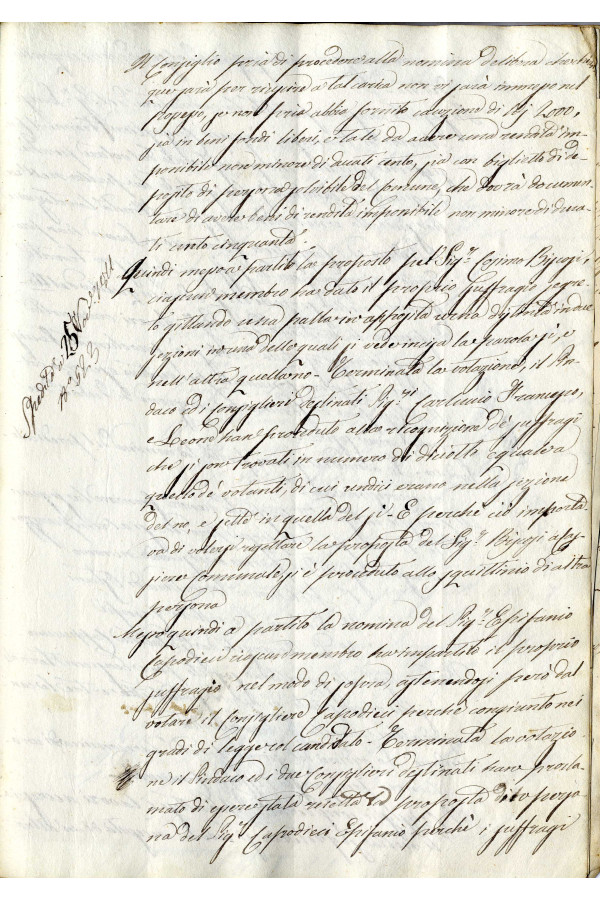 Il Consiglio pria di procedere alla nomina delibera che chiun
que sarà per riuscire a tal carica non vi sarà immesso nel
possesso, se non pria abbia fornito cauzione di 2000,
sia in beni fondi liberi, e tale da avere una rendita im-
ponibile non minore di ducati cento, sia con biglietto di de-
posito di persona solvibile del Comune, che dovrà documen-
tare di avere beni di rendita imponibile non minore di duca-
ti cento cinquanta.
Quindi messo a partito la proposta pel Sig.r Cosimo
ciascun membro ha dato il proprio suffragio segre-
to gittando una palla in apposita urna distinta in due
sezioni in una delle quali si vede incisa la parola sì, e
nell'altra quella no - Terminata la votazione, il Sin-
daco ed i Consiglieri destinati Sig.ri Francesco,
e Leone han proceduto alla ricognizione de' suffragi
che si son trovati in numero di diciotto eguale a
quello de' votanti, di cui undici erano nella sezione
del no, e sette in quella del sì - E perchè ciò importa-
va di volersi rigettare la proposta del Sig.r a Cas-
siere Comunale, si è proceduto allo squittinio di altra
persona
Messo quindi a partito la nomina del Sig.r Epifanio
Capodieci ciascun membro ha impartito il proprio
suffragio nel modo di sopra, astenendosi però dal
votare il Consigliere Capodieci perchè congiunto nei
gradi di legge col candidato - Terminata la votazio
ne il Sindaco ed i due Consiglieri destinati han procla
mato di essere stata la proposta di perso
na del Sig.r Capodieci Epifanio perchè i suffragi
Spedita a 25
N.o 523